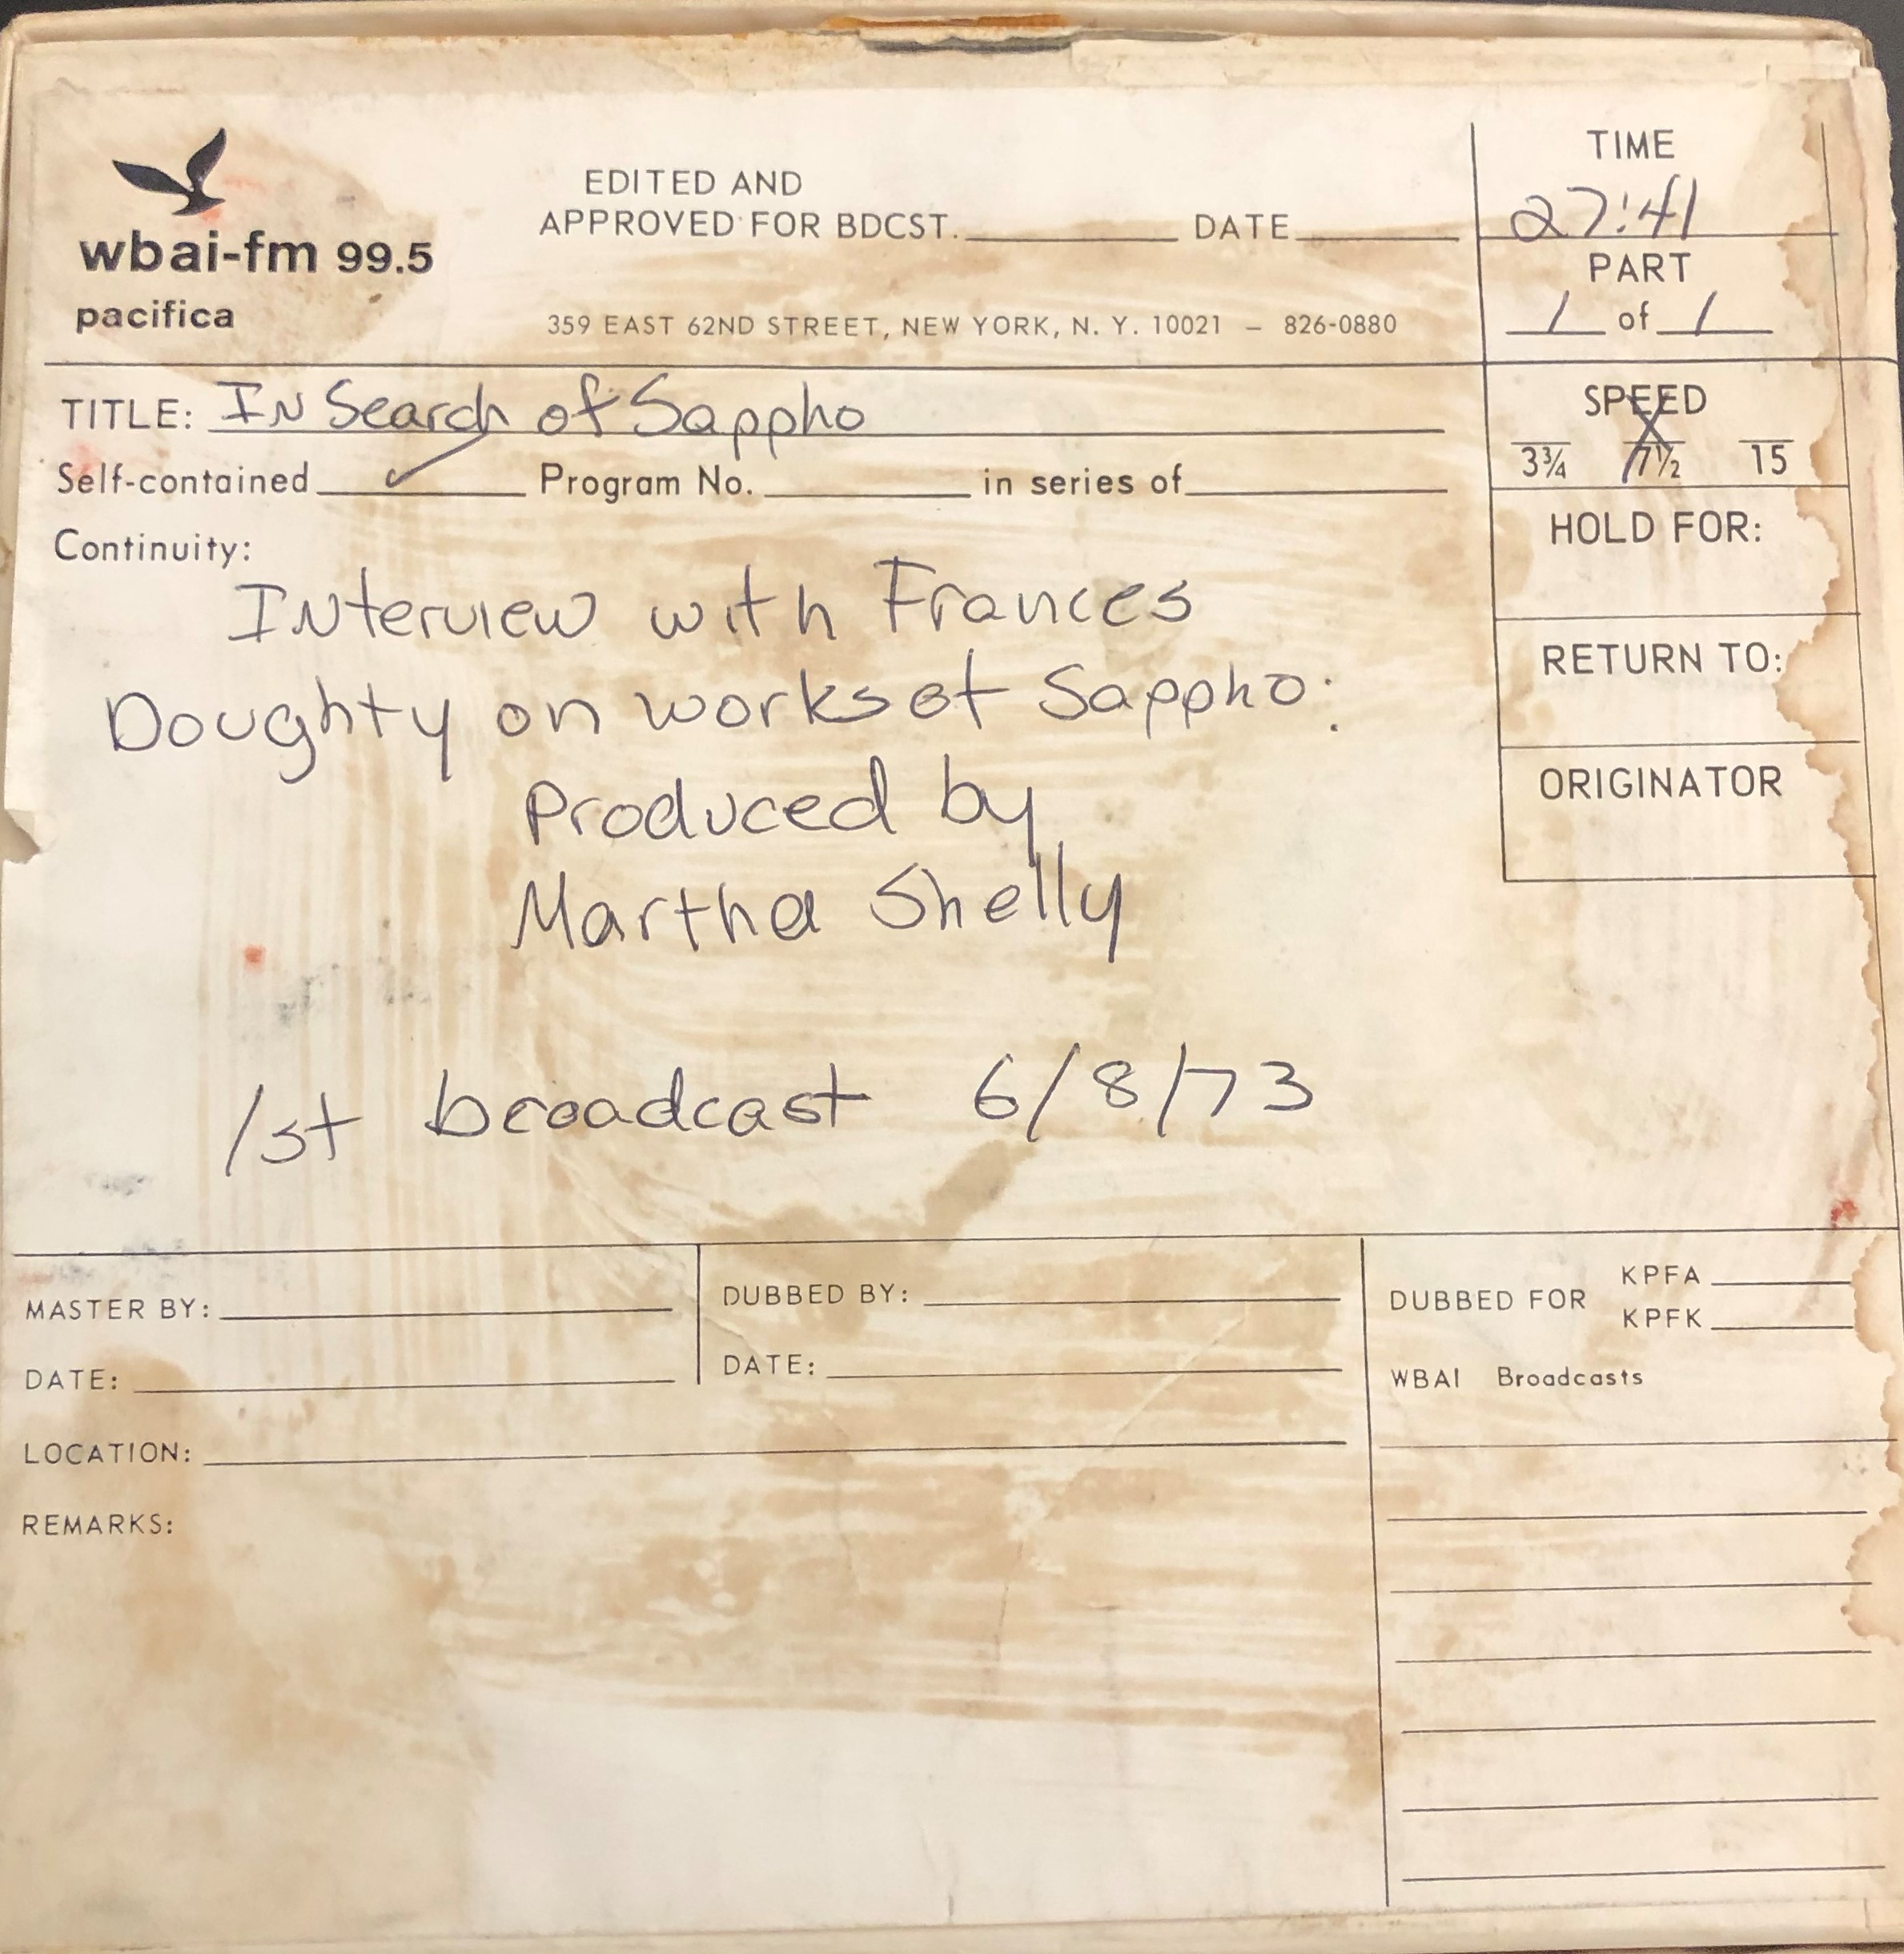 wbai-fm 99.5
pacifica
EDITED AND
APPROVED FOR BDCST. DATE
359 EAST 62ND STREET, NEW YORK, N. Y. 10021 – 826-0880
TIME
27:41
PART
1 of 1
TITLE: In Search of Sappho
Self-contained ✓ Program No. in series of
SPEED
X
3¾ 7½ 15
HOLD FOR:
RETURN TO:
ORIGINATOR
Continuity:
Interview with Frances
Doughty on works of Sappho:
Produced by
Martha Shelly
1st broadcast 6/8/73
MASTER BY:
DATE:
DUBBED BY:
DATE:
LOCATION:
REMARKS:
DUBBED FOR KPFA
KPFK
WBAI Broadcasts